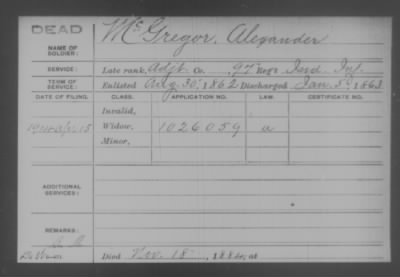 DEAD
NAME OF SOLDIER: McGregor, Alexander
SERVICE: Late rank, Adjt. Co. , 97 Reg't Ind. Inf.
TERM OF SERVICE: Enlisted Aug. 30, 1862 Discharged Jan. 5, 1863
DATE OF FILING. CLASS. APPLICATION NO. LAW. CERTIFICATE NO.
Invalid,
1914 Apr. 15 Widow, 1026059 a
Minor,
ADDITIONAL SERVICES:
REMARKS:
Died Nov. 18, 1884, at